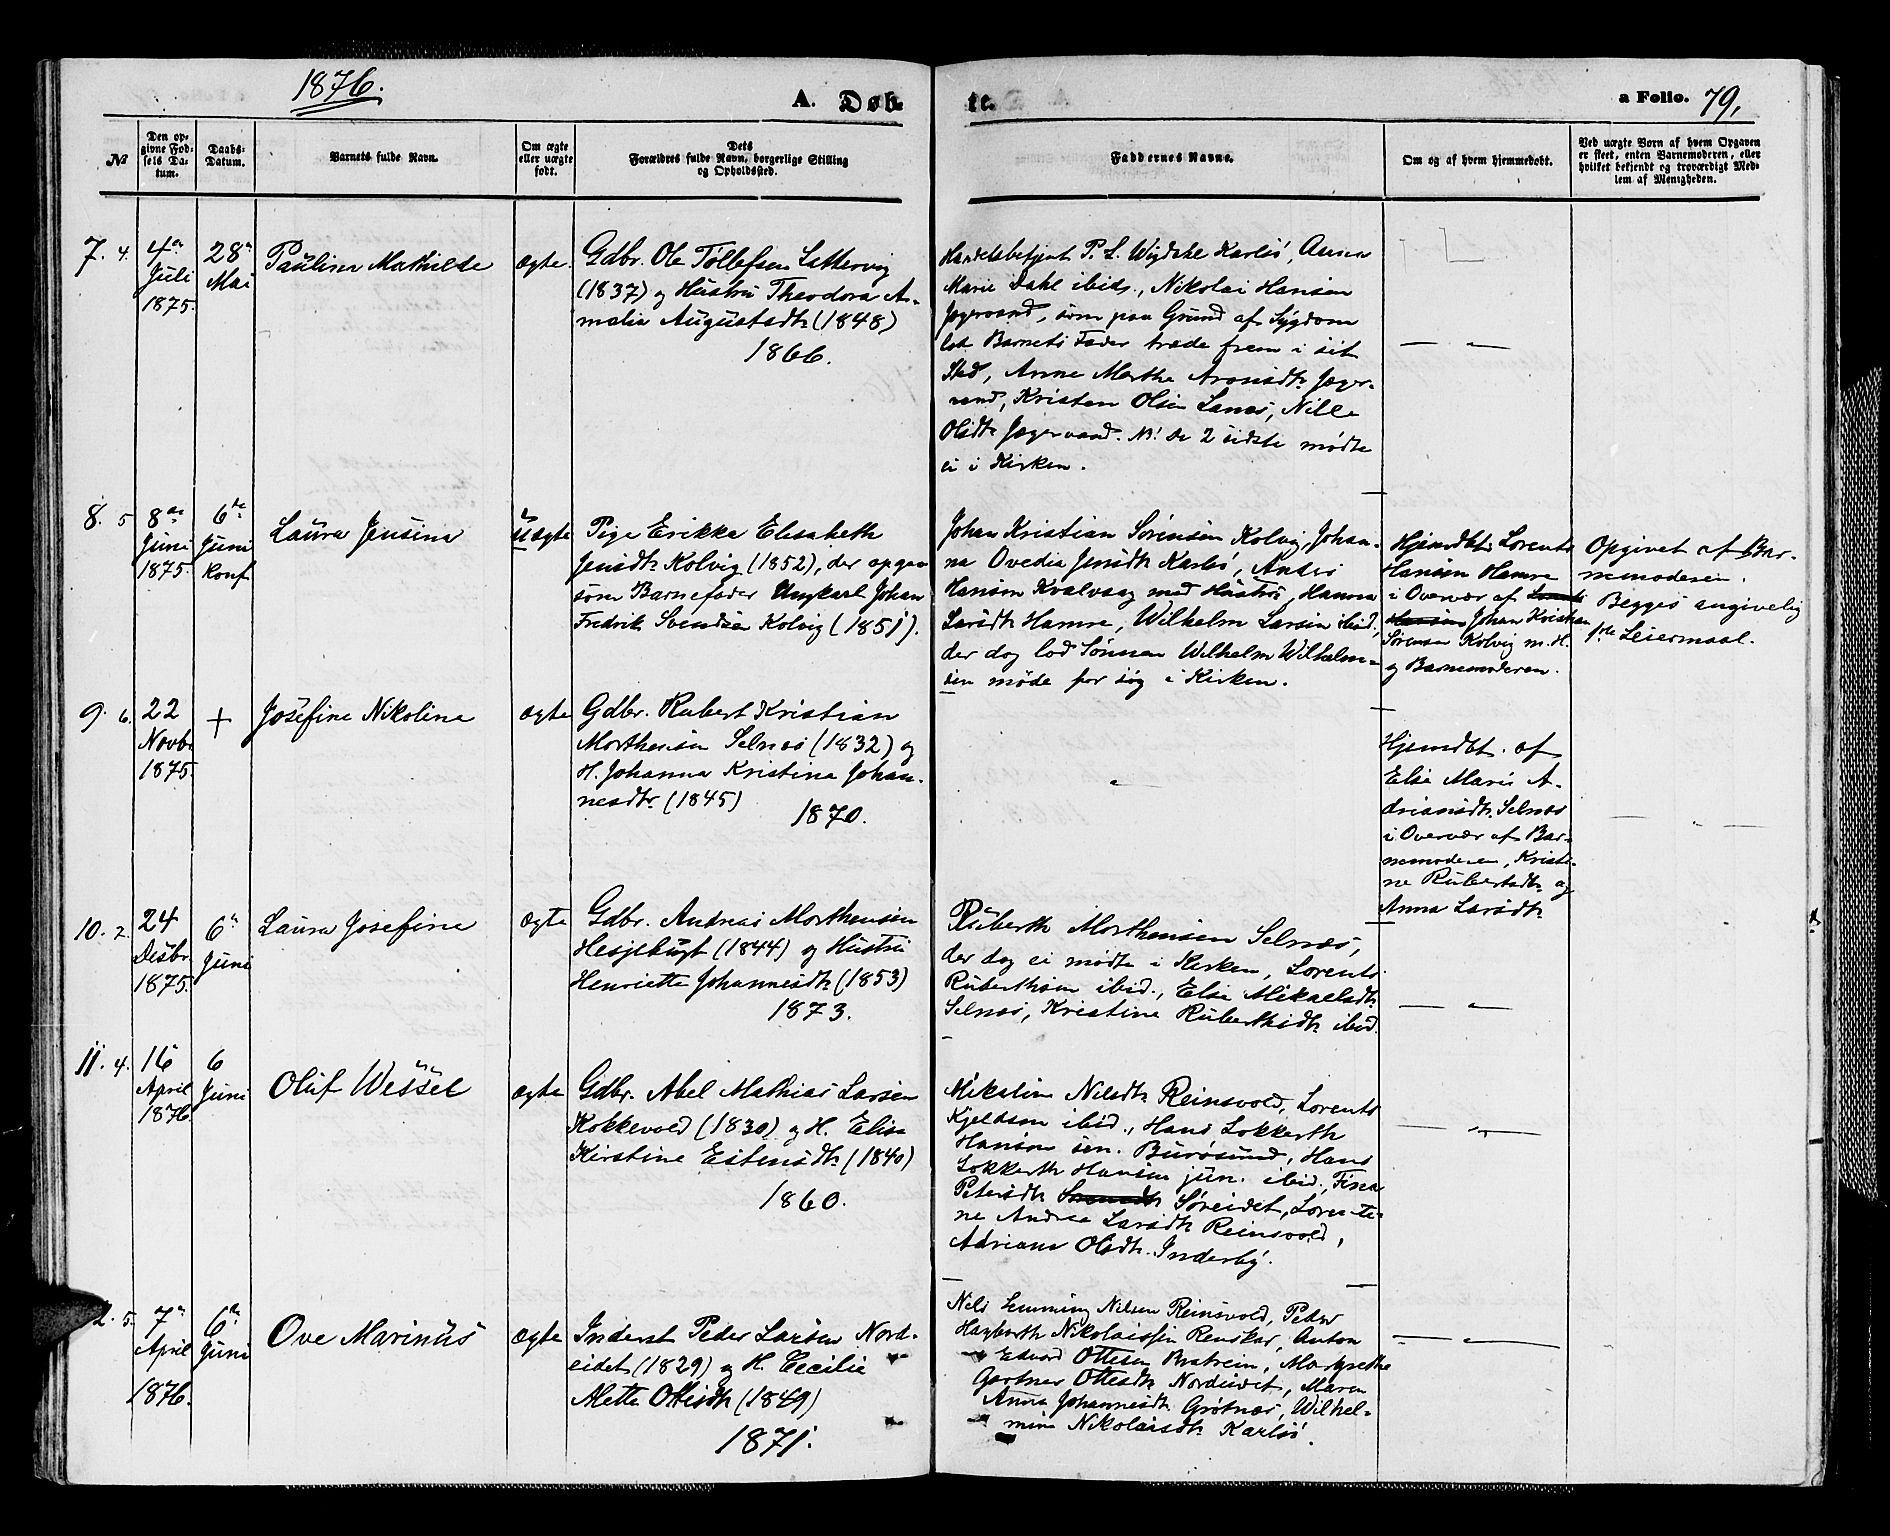 1876.
A. Døb-
te.
a Folio. 79,
№
Den op-
givne Fød-
sels Da-
tum.
Daabs-
Datum.
Barnets fulde Navn.
Om ægte
eller uægte
født.
Dets
Forældres fulde Navn, borgerlige Stilling
og Opholdssted.
Faddernes Navne.
Om og af hvem hjemmedøbt.
Ved uægte Børn af hvem Opgaven
er skeet, enten Barnemoderen, eller
hvilket bekjendt og troværdigt Med-
lem af Menigheden.
7. 4.
4de
Juli
1875.
28de
Mai
Pauline Mathilde
ægte.
Gdbr. Ole Tøllefsen Lattervig
(1837) og Hustru Theodora A-
malia Augustsdtr (1848)
1866.
Handelsbetjent P. L. Karlsø, Anna
Marie Dahl ibid., Nikolai Hansen
Jægervand, som paa Grund af Sygdom
lod Barnets Fader træde frem i sit
Sted, Anne Marthe Aronsdtr Jæger-
vand, Kristen Olsen Lanes, Nille
Olsdtr Jægervand. NB! De 2 sidste mødte
ei i Kirken.
8. 5
8de
Juni
1875.
6te
Juni
Konf
Laura Jensine
uægte
Pige Erikka Elisabeth
Jensdtr Kolvig (1852), der opgav
som Barnefader Ungkarl Johan
Fredrik Svendsen Kolvig (1851).
Johan Kristian Sørensen Kolvig, Johan-
na Ovedia Jensdtr Karlsø, Anders
Hansen Kvalvaag med Hustru, Hanna
Larsdtr Hamre, Wilhelm Larsen ibid,
der dog lod Sønnen Wilhelm Wilhelm-
sen møde for sig i Kirken.
Hjemdbt. Lorents
Hansen Hamre
i Overvær af Lorents
Hansen Johan Kristian
Sørensen Kolvig m. H.
og Barnemoderen.
Opgivet af Bar-
nemoderen.
Begges angivelig
1ste Leiermaal.
9. 6.
22
Novbr
1875.
+
Josefine Nikoline
ægte
Gdbr. Rubert Kristian
Morthensen Selnæs (1832) og
H. Johanna Kristina Johan-
nesdtr (1845)
1870.
Hjemdbt. af
Else Marie A-
driansdtr Selnæs
i Overvær af Bar-
nemoderen, Kristi-
ne Rubertsdtr og
Anna Larsdtr
10. 2.
24
Desbr
1875.
6te
Juni
Laura Josefine
ægte
Gdbr. Andreas Morthensen
Hessjebugt (1844) og Hustru
Henriette Johannesdtr (1853)
1873.
Ruberth Morthensen Selnæs,
der dog ei mødte i Kirken, Lorents
Ruberthsen ibid., Else Mikaelsdtr
Selnæs, Kristine Ruberthsdtr ibid.
11. 4.
16
April
1876.
6
Juni
Oluf Wessel
ægte
Gdbr. Abel Mathias Larsen
Kokkevold (1830) og H. Elisa
Kirstine Estensdtr (1840)
1860.
Mikaline Nilsdtr Reinsvold, Lorents
Kjeldsen ibid., Hans Lokkerth
Hansen sen. Burøsund, Hans
Lokkerth Hansen jun. ibid., Fina
Petersdtr Søreidet, Loren-ti-
ne Andrea Larsdtr Reinsvold,
Adriane Olsdtr. Inderby.
2. 5.
7de
April
1876.
6te
Juni
Ove Marinus
ægte
Inderst Peder Larsen Nord-
eidet (1829) og H. Cecilie
Mette Ottesdtr (1849)
1871.
Nels Lemming Nilsen Reinsvold, Peder
Hagbarth Nikolaissen Renskar, Anton
Edvard Ottesen Bratrein, Margrethe
Gartner Ottesdtr Nordeidet, Maren
Anna Johannesdtr Grøtnæs, Wilhel-
mine Nikolaisdtr Karlsø.